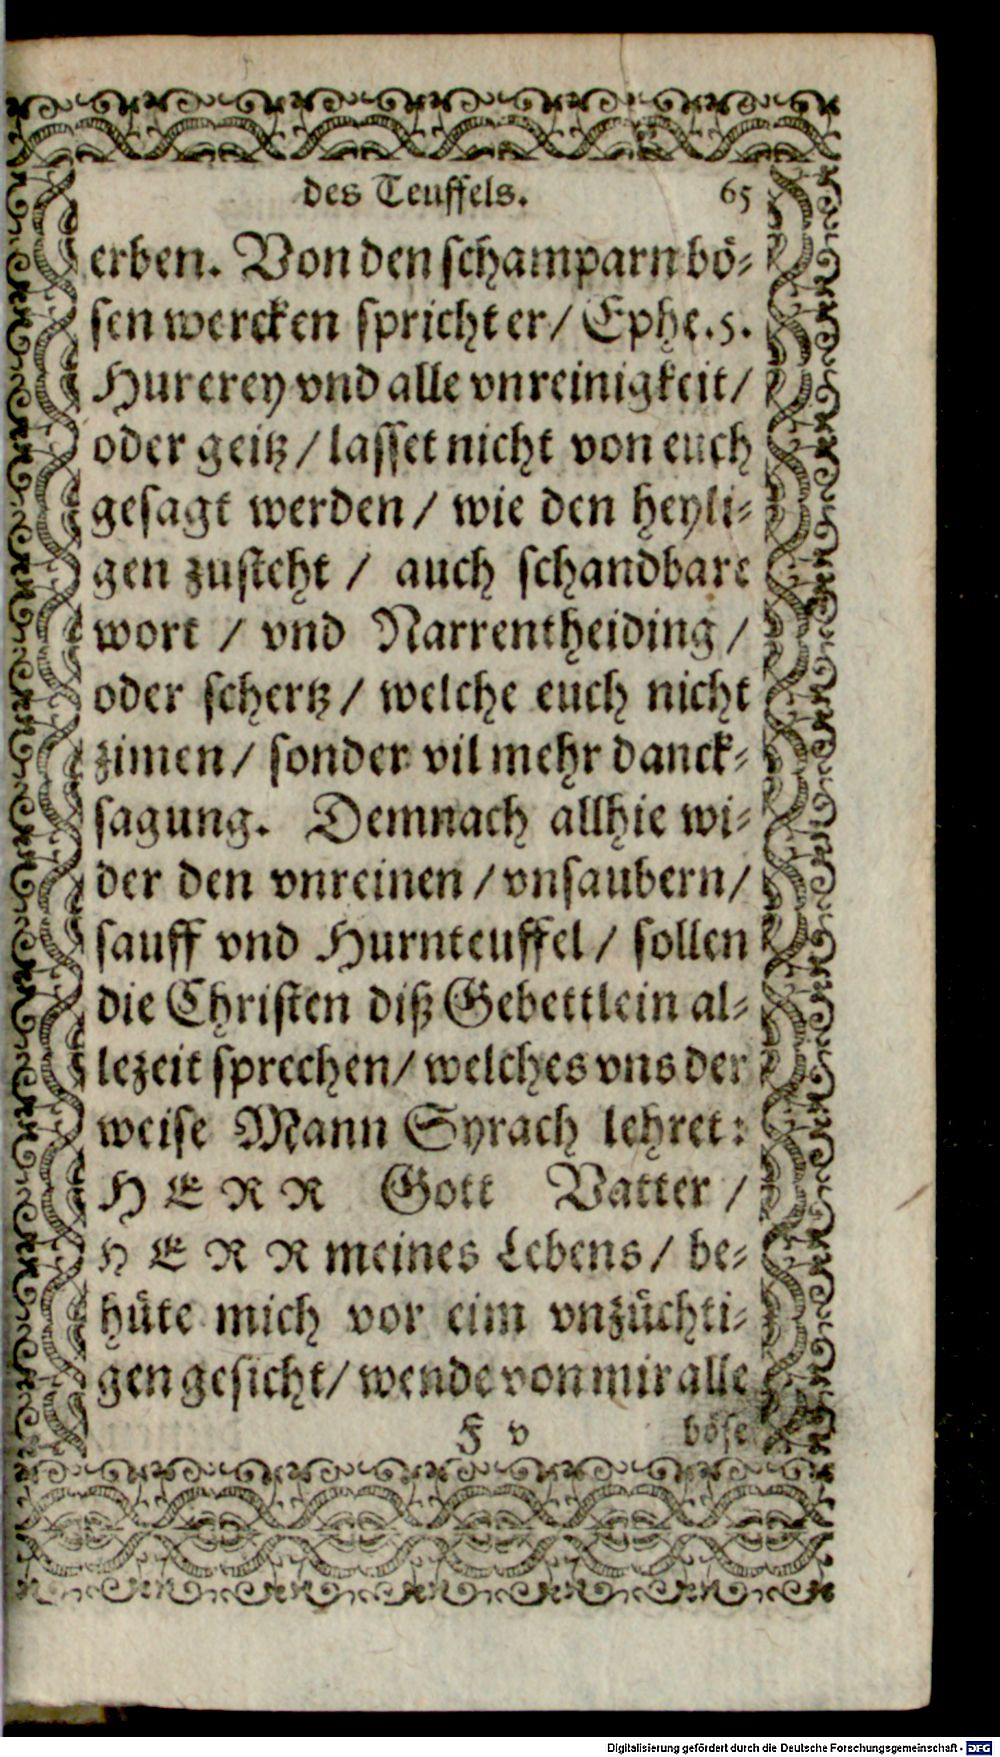 des Teuffels. 65
erben. Von den schamparn bö-
sen wercken spricht er/ Ephe. 5.
Hurerey vnd alle vnreinigkeit/
oder geitz/ lasset nicht von euch
gesagt werden/ wie den heyli-
gen zusteht / auch schandbare
wort / vnd Narrentheiding /
oder schertz/ welche euch nicht
zimen/ sonder vil mehr danck-
sagung. Demnach allhie wi-
der den vnreinen /vnsaubern/
sauff vnd Hurnteuffel/ sollen
die Christen diß Gebettlein al-
lezeit sprechen/ welches vns der
weise Mann Syrach lehret:
HERR Gott Vatter /
HERR meines Lebens/ be-
hüte mich vor eim vnzüchti-
gen gesicht/ wende von mir alle
F v böse
Digitalisierung gefördert durch die Deutsche Forschungsgemeinschaft - DFG